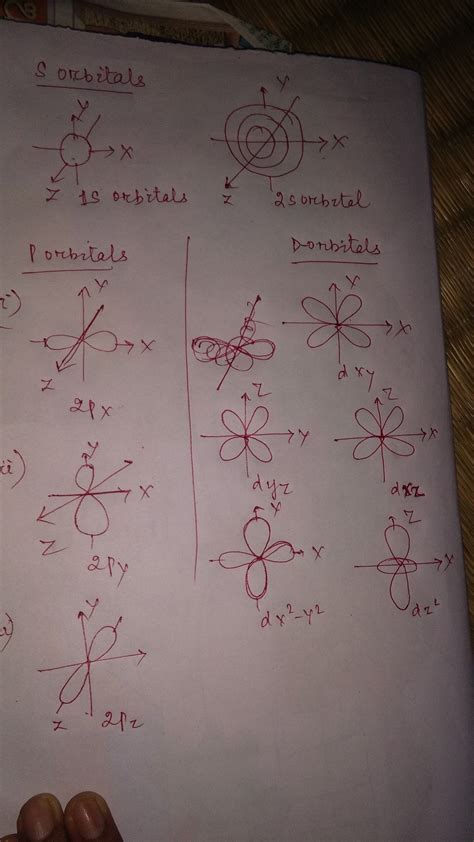 S orbitals
Y
X
Z
1S orbitals
Y
X
Z
2s orbital
P orbitals
Y
X
Z
2Px
ii)
Y
X
Z
2Py
Y
Z
2Pz
D-orbitals
Y
X
dxy
Z
Y
dyz
Z
X
dxz
Y
X
dx²-y²
Z
X
dz²